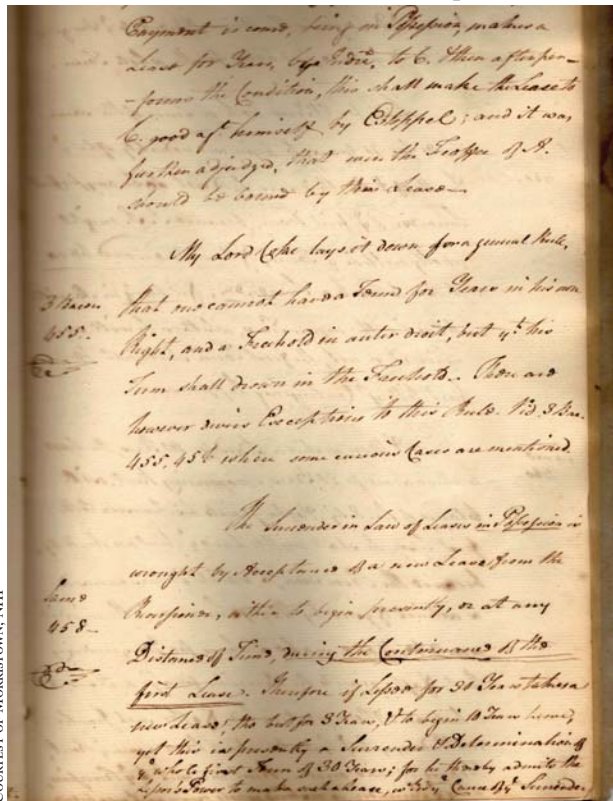 Easement is come, being in Possession, makes a
Lease for Years, by Indre, to C. then after per-
-forms the Condition, this shall make the Lease to
C. good agt himself by Estoppel; and it was
further adjudged, that even the Feoffee of A.
should be bound by this Lease—
My Lord Coke lays it down for a general Rule,
3 Bacon
455.
that one cannot have a Term for Years in his own
Right, and a Freehold in auter droit, but yt his
Term shall drown in the Freehold. There are
however divers Exceptions to this Rule. Vid. 3 Bac.
455. 456 where some curious Cases are mentioned.
The Surrender in Law of Leases in Possession is
Same
458—
wrought by Acceptance of a new Lease from the
Reversioner, either to begin presently, or at any
Distance of Time, during the Continuance of the
first Lease. Therefore if Lessee for 30 Years takes a
new Lease, tho but for 3 Years, & to begin 10 Years hence,
yet this is presently a Surrender & Determination of
ye whole first Term of 30 Years; for he thereby admits the
Lessors Power to make such a Lease, Cause of yt Surrender
COURTESY OF MORRISTOWN, NHP